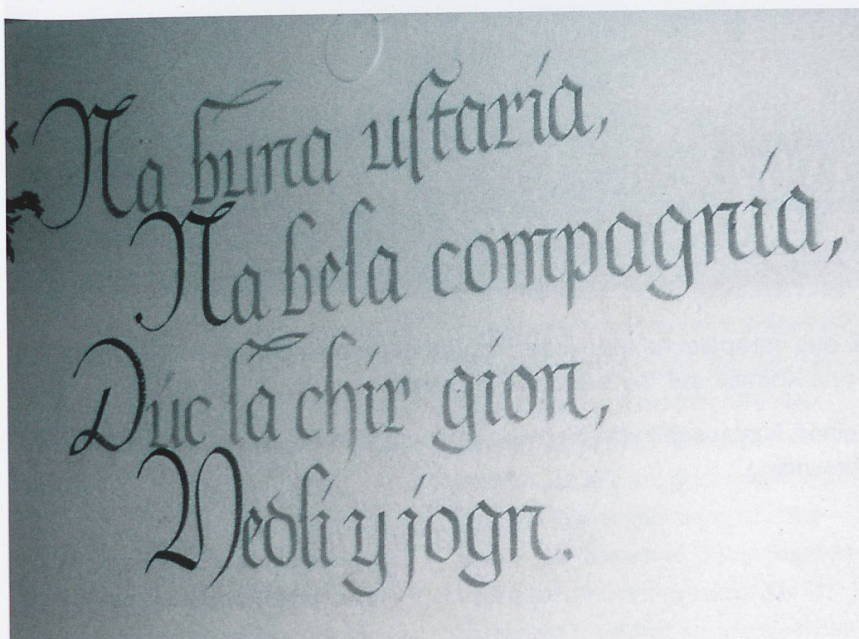 Na buna uſtaria,
Na bela compagnia,
Dúc la chir gion,
Vedli y jogn.